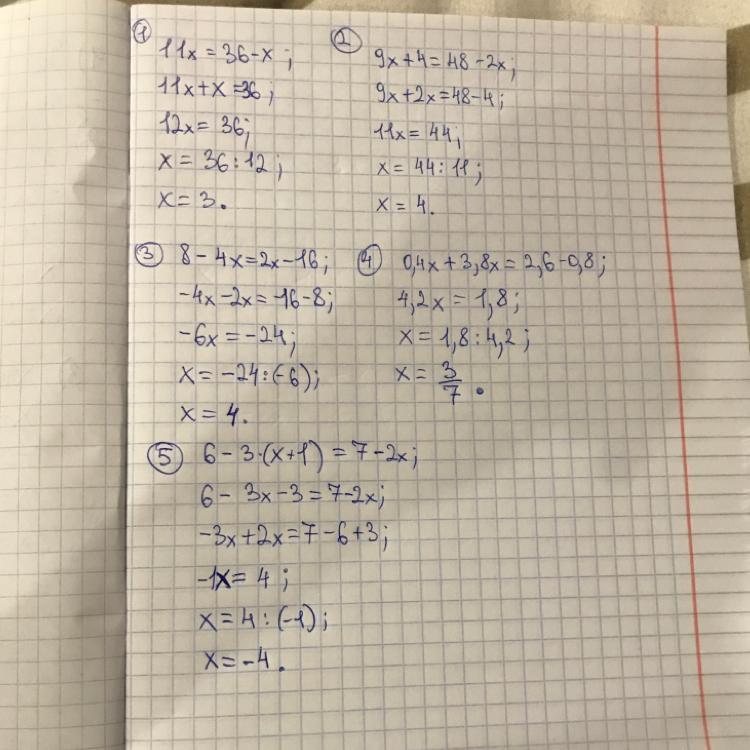 ① 11x = 36-x ;
11x+x =36 ;
12x = 36;
x = 36:12 ;
x = 3.
② 9x+4=48-2x;
9x+2x=48-4;
11x=44;
x = 44:11;
x = 4.
③ 8-4x=2x-16;
-4x-2x=-16-8;
-6x=-24;
x=-24:(-6);
x = 4.
④ 0,4x+3,8x=2,6-0,8;
4,2x=1,8;
x=1,8:4,2;
x=3/7.
⑤ 6-3·(x+1)=7-2x;
6-3x-3=7-2x;
-3x+2x=7-6+3;
-1x=4;
x=4:(-1);
x=-4.